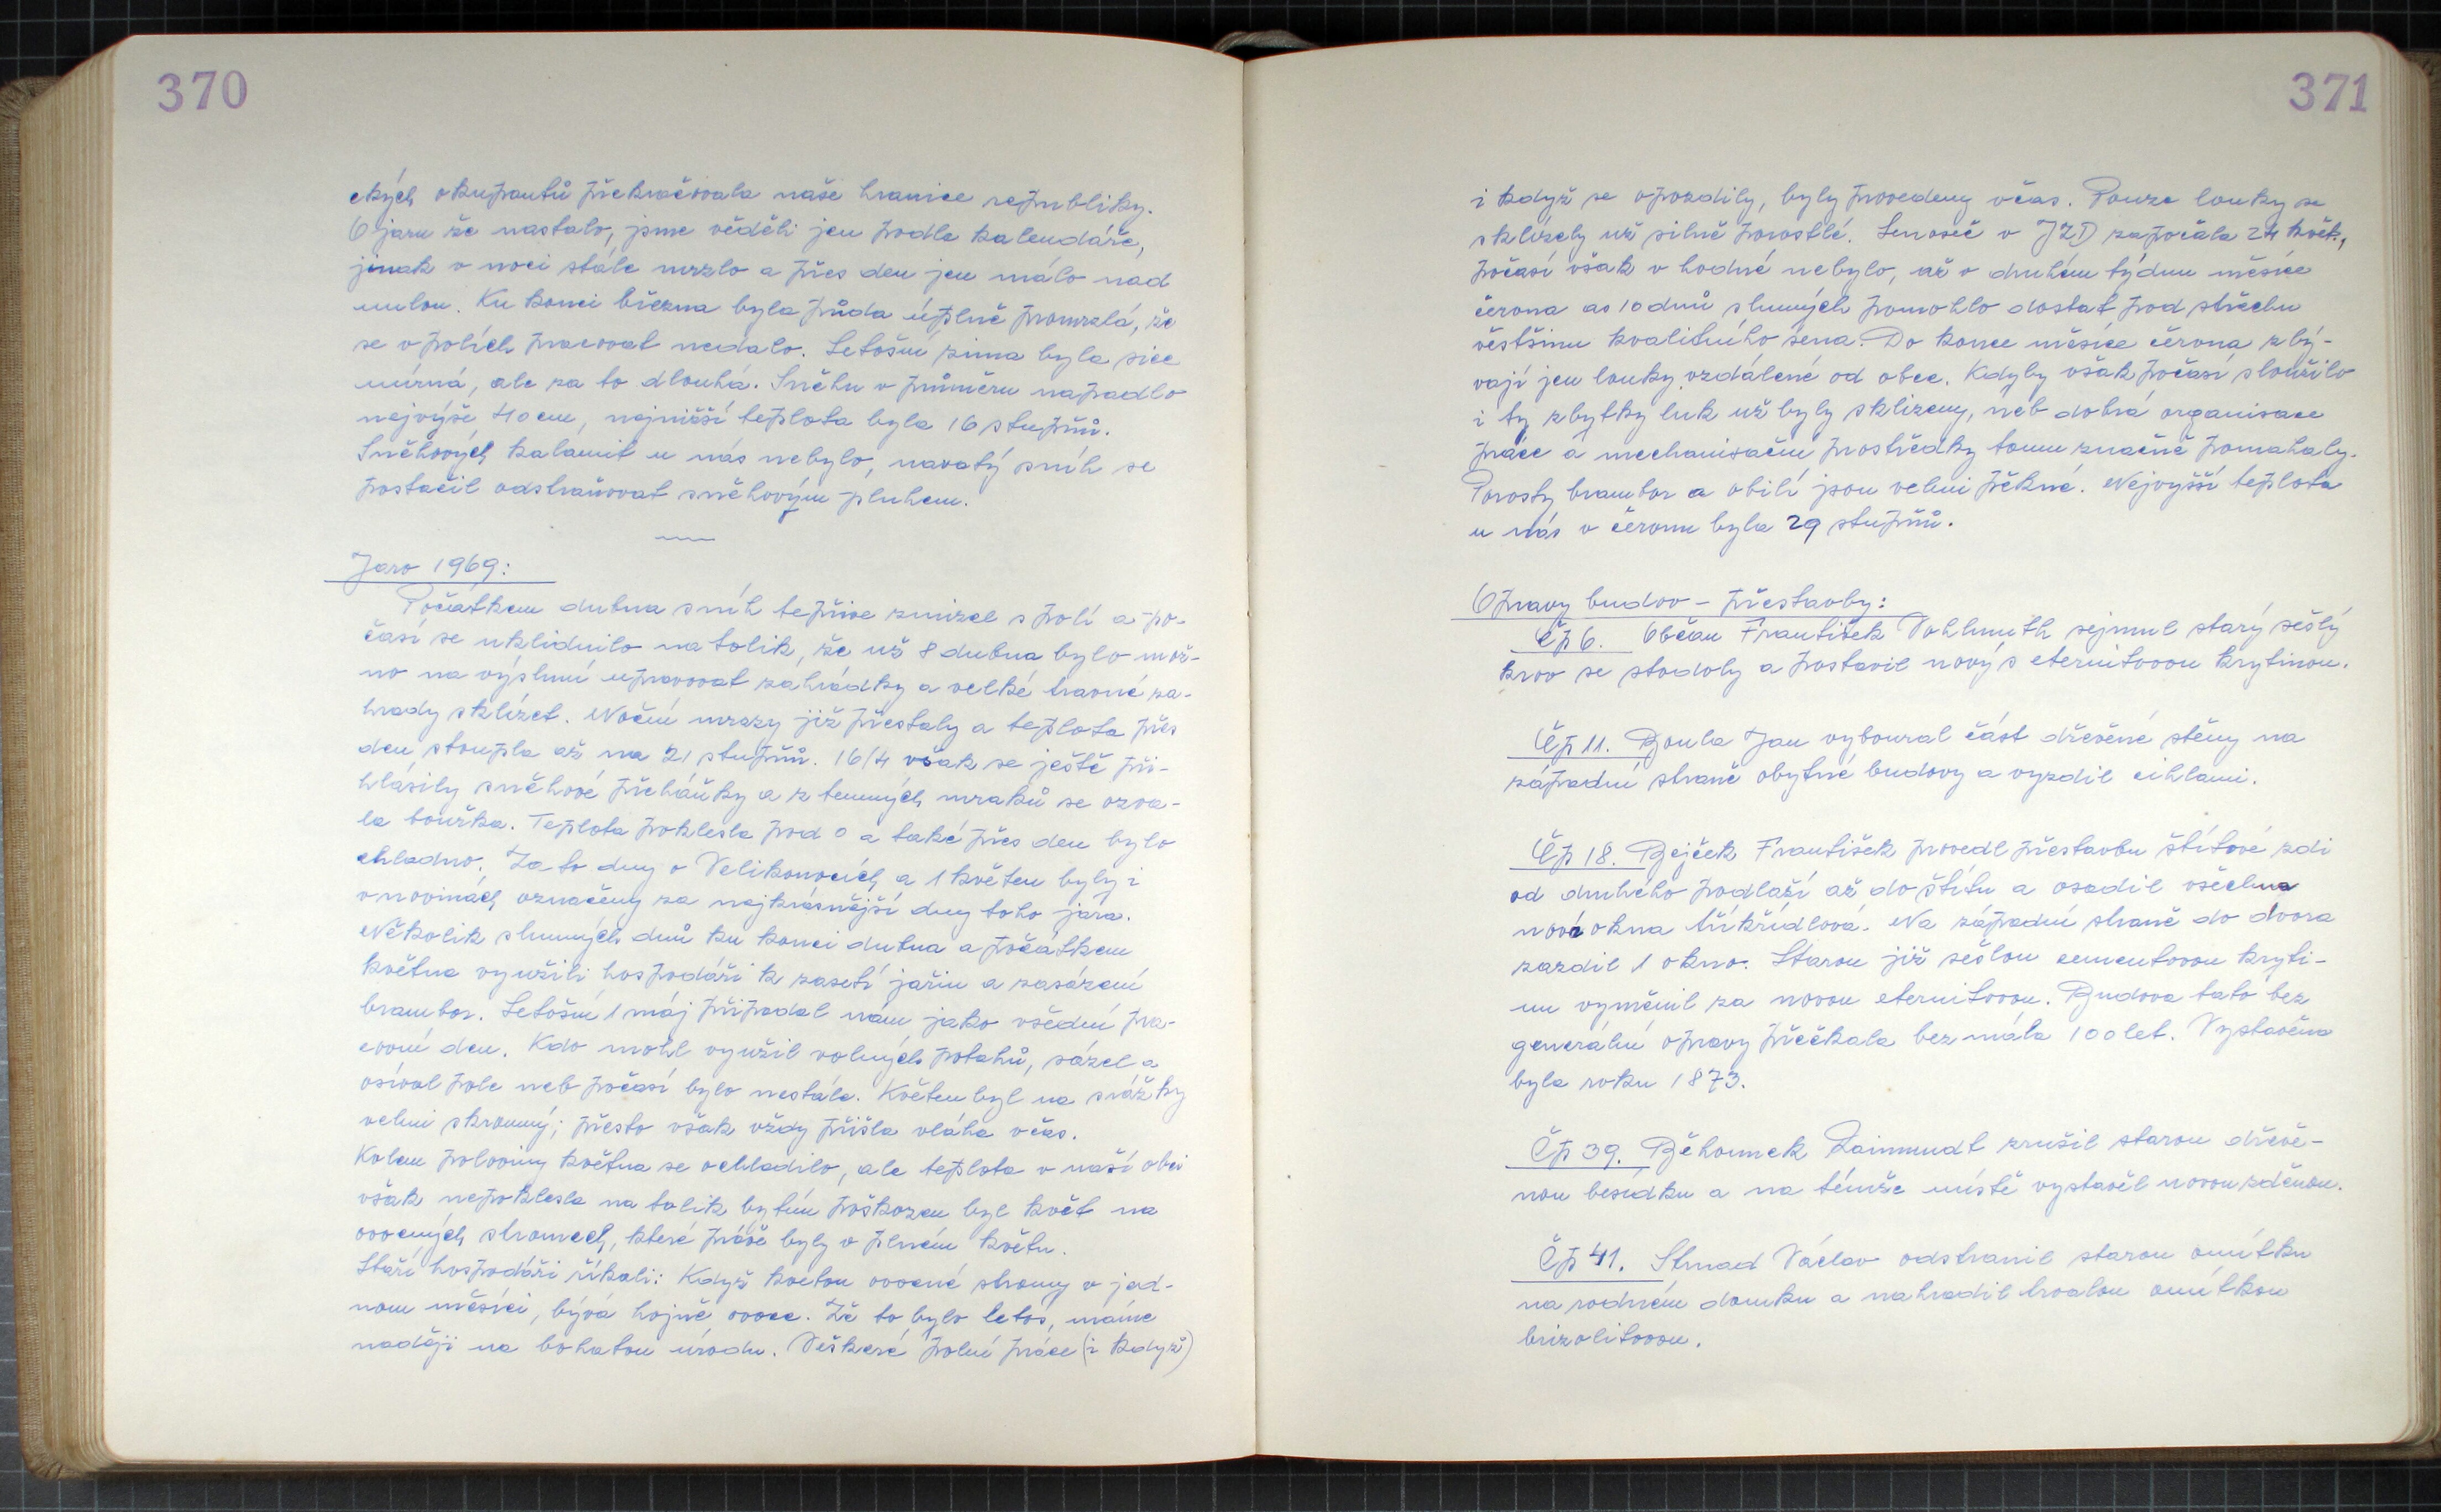 370
ckých okupantů překračovala naše hranice republiky.
O jaru že nastalo, jsme věděli jen podle kalendáře,
jinak v noci stále mrzlo a přes den jen málo nad
nulou. Ku konci března byla půda úplně promrzlá, že
se v polích pracovat nedalo. Letošní zima byla sice
mírná, ale za to dlouhá. Sněhu v průměru napadlo
nejvýše 40 cm, nejnižší teplota byla 16 stupňů.
Sněhových kalamit u nás nebylo, navatý sníh se
postačil odstraňovat sněhovým pluhem.
Jaro 1969:
Počátkem dubna sníh teprve zmizel s polí a po-
časí se uklidnilo na tolik, že už 8 dubna bylo mož-
no na výsluní upravovat zahrádky a velké travné za-
hrady sklízet. Noční mrazy již přestaly a teplota přes
den stoupla až na 21 stupňů. 16/4 však se ještě při-
hlásily sněhové přeháňky a z temných mraků se ozva-
la bouřka. Teplota poklesla pod 0 a také přes den bylo
chladno. Za to dny o Velikonocích a 1 květen byly i
v novinách označeny za nejkrásnější dny toho jara.
Několik slunných dnů ku konci dubna a počátkem
května využili hospodáři k zasetí jařin a zasázení
brambor. Letošní 1 máj připadal nám jako všední pra-
covní den. Kdo mohl využil volných potahů, sázel a
osíval pole neb počasí bylo nestále. Květen byl na srážky
velmi skromný; přesto však vždy přišla vláha včas.
Kolem poloviny května se ochladilo, ale teplota v naší obci
však nepoklesla na tolik by tím poškozen byl květ na
ovocných stromech, které právě byly v plném květu.
Staří hospodáři říkali: Když kvetou ovocné stromy v jed-
nom měsíci, bývá hojně ovoce. Že to bylo letos, máme
naději na bohatou úrodu. Veškeré polní práce (i když)
371
i když se opozdily, byly provedeny včas. Pouze louky se
sklízely už silně porostlé. Senoseč v JZD započala 24 květ.,
počasí však v hodné nebylo, až v druhém týdnu měsíce
června as 10 dnů slunných pomohlo dostat pod střechu
většinu kvalitního sena. Do konce měsíce června zbý-
vají jen louky vzdálené od obce. Kdyby však počasí sloužilo
i ty zbytky luk už byly sklizeny, neb dobrá organisace
práce a mechanisační prostředky tomu značně pomahaly.
Porosty brambor a obilí jsou velmi pěkné. Nejvyšší teplota
u nás v červnu byla 29 stupňů.
Opravy budov - přestavby:
Čp 6. Občan František Vohlmuth sejmul starý sešlý
krov se stodoly a postavil nový s eternitovou krytinou.
Čp 11. Boula Jan vyboural část dřevěné stěny na
západní straně obytné budovy a vyzdil cihlami.
Čp 18. Bejček František provedl přestavbu štítové zdi
od druhého podlaží až do štítu a osadil všechna
nová okna tříkřídlová. Na západní straně do dvora
zazdil 1 okno. Starou již sešlou cementovou kryti-
nu vyměnil za novou eternitovou. Budova tato bez
generální opravy přečkala bez mála 100 let. Vystavěna
byla roku 1873.
Čp 39. Běhounek Raimundt zrušil starou dřevě-
nou besídku a na témže místě vystavěl novou zděnou.
Čp 41. Strnad Václav odstranil starou omítku
na rodném domku a nahradil trvalou omítkou
brizolitovou.